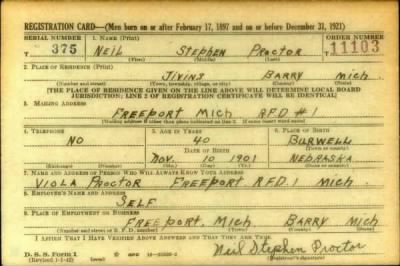 REGISTRATION CARD—(Men born on or after February 17, 1897 and on or before December 31, 1921)
SERIAL NUMBER 1. NAME (Print) ORDER NUMBER
T 375 NEIL STEPHEN PROCTOR T 11103
(First) (Middle) (Last)
2. PLACE OF RESIDENCE (Print)
BARRY Mich.
(Number and street) (Town, township, village, or city) (County) (State)
[THE PLACE OF RESIDENCE GIVEN ON THE LINE ABOVE WILL DETERMINE LOCAL BOARD
JURISDICTION; LINE 2 OF REGISTRATION CERTIFICATE WILL BE IDENTICAL]
3. MAILING ADDRESS
FREEPORT MICH RFD #1
[Mailing address if other than place indicated on line 2. If same insert word same]
4. TELEPHONE 5. AGE IN YEARS 6. PLACE OF BIRTH
NO 40 BURWELL
DATE OF BIRTH
NOV. 10 1901 NEBRASKA
(Exchange) (Number) (Mo.) (Day) (Yr.) (State or country)
7. NAME AND ADDRESS OF PERSON WHO WILL ALWAYS KNOW YOUR ADDRESS
VIOLA PROCTOR FREEPORT RFD.1 MICH
8. EMPLOYER'S NAME AND ADDRESS
SELF
9. PLACE OF EMPLOYMENT OR BUSINESS
FREEPORT, MICH BARRY Mich
(Number and street or R. F. D. number) (Town) (County) (State)
I AFFIRM THAT I HAVE VERIFIED ABOVE ANSWERS AND THAT THEY ARE TRUE.
D. S. S. Form 1
(Revised 1-1-42) GPO Neil Stephen Proctor
(Registrant's signature)